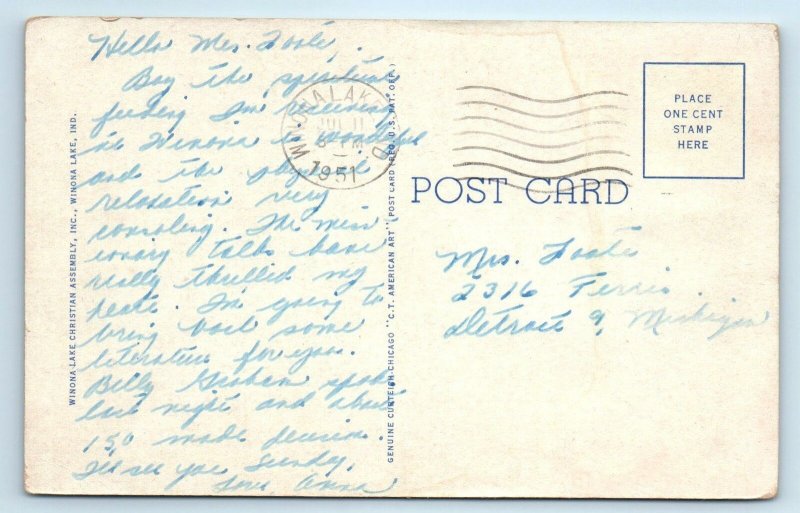 Hello Mrs. Foote,
Boy the spiritual
feeding I'm receiving
in Winona is wonderful
and the physical
relaxation very
consoling. The miss
ionary talks have
really thrilled my
heart. I'm going to
bring back some
literature for you.
Billy Graham spoke
last night and about
150 made decision.
I'll see you Sunday,
Love, Anna
WINONA LAKE CHRISTIAN ASSEMBLY, INC., WINONA LAKE, IND.
GENUINE CURTEICH-CHICAGO "C.T. AMERICAN ART" POST CARD (REG. U.S. PAT. OFF.)
WINONA LAKE, IND
JUL 11
PM
1951
PLACE
ONE CENT
STAMP
HERE
POST CARD
Mrs. Foote
2316 Ferris
Detroit 9, Michigan